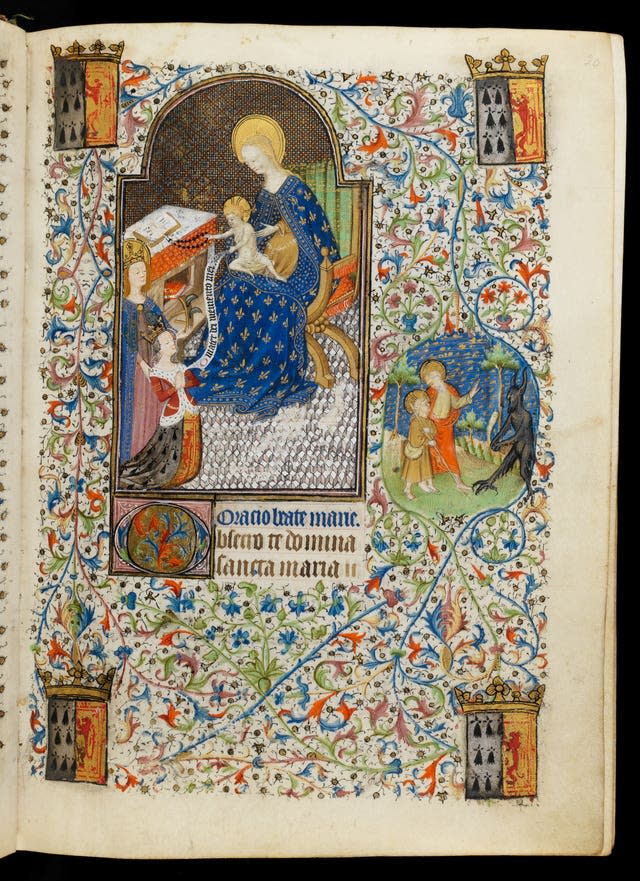 20
o mater dei memento mei
Oratio beate marie.
Obsecro te domina
sancta maria